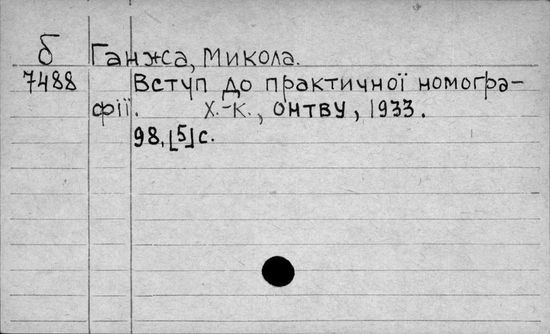 б Ганжа, Микола.
7488 Вступ до практичної номогра-
фії. Х.-К., ОНТВУ, 1933.
98, [5] с.